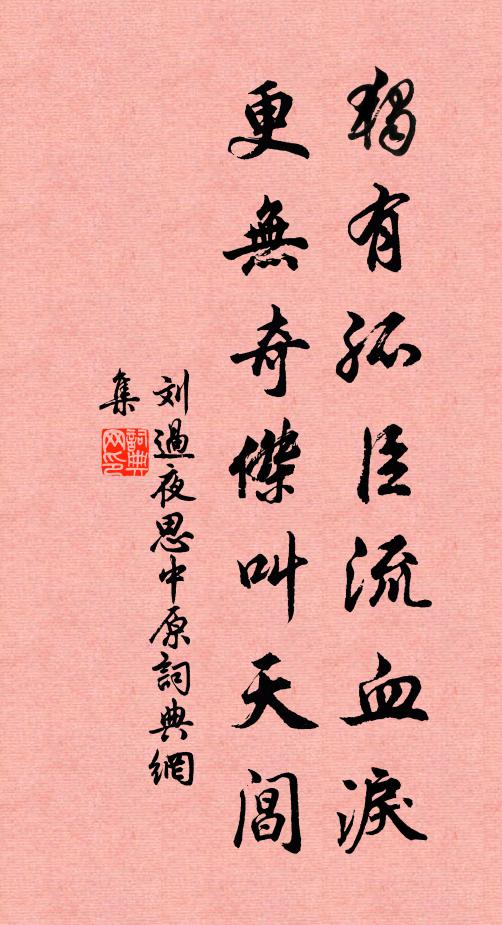 獨有孤臣流血淚
更無奇傑叫天閽
刘過夜思中原詞典網
集
詞典
网印